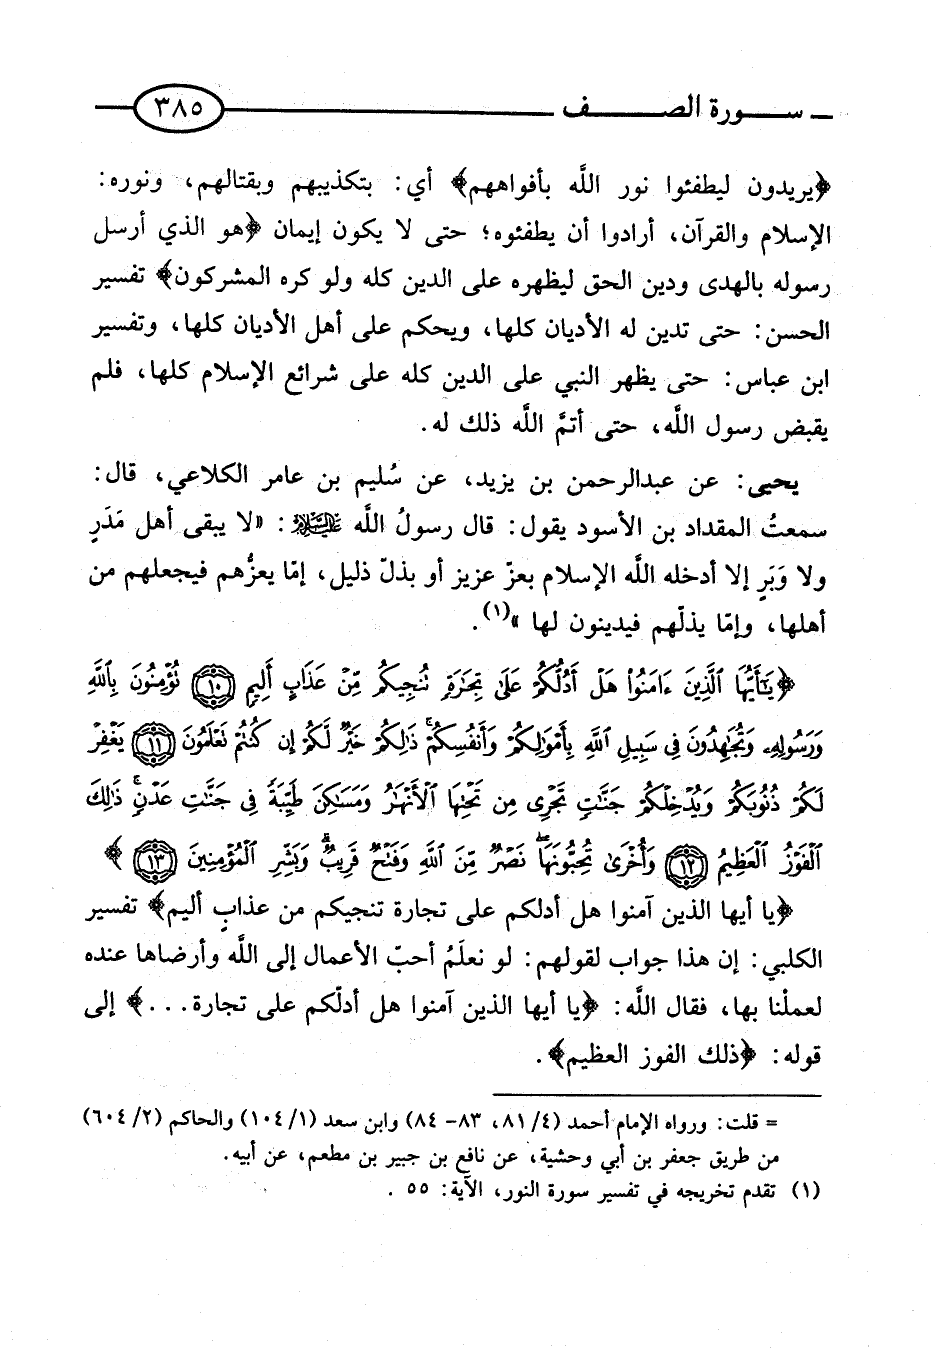 سورة الصف ٣٨٥
﴿يريدون ليطفئوا نور الله بأفواههم﴾ أي: بتكذيبهم وبقتالهم، ونوره:
الإسلام والقرآن، أرادوا أن يطفئوه؛ حتى لا يكون إيمان ﴿هو الذي أرسل
رسوله بالهدى ودين الحق ليظهره على الدين كله ولو كره المشركون﴾ تفسير
الحسن: حتى تدين له الأديان كلها، ويحكم على أهل الأديان كلها، وتفسير
ابن عباس: حتى يظهر النبي على الدين كله على شرائع الإسلام كلها، فلم
يقبض رسول اللَّه، حتى أتمَّ اللَّه ذلك له.
يحيى: عن عبدالرحمن بن يزيد، عن سُليم بن عامر الكلاعي، قال:
سمعتُ المقداد بن الأسود يقول: قال رسولُ اللَّه ﷺ: «لا يبقى أهل مَدَرٍ
ولا وَبَرٍ إلا أدخله اللَّه الإسلام بعزّ عزيز أو بذلّ ذليل، إمّا يعزُّهم فيجعلهم من
أهلها، وإمّا يذلّهم فيدينون لها»(١).
﴿يَٰٓأَيُّهَا ٱلَّذِينَ ءَامَنُوا۟ هَلْ أَدُلُّكُمْ عَلَىٰ تِجَٰرَةٍ تُنجِيكُم مِّنْ عَذَابٍ أَلِيمٍ ١٠ تُؤْمِنُونَ بِٱللَّهِ
وَرَسُولِهِۦ وَتُجَٰهِدُونَ فِى سَبِيلِ ٱللَّهِ بِأَمْوَٰلِكُمْ وَأَنفُسِكُمْ ۚ ذَٰلِكُمْ خَيْرٌ لَّكُمْ إِن كُنتُمْ تَعْلَمُونَ ١١ يَغْفِرْ
لَكُمْ ذُنُوبَكُمْ وَيُدْخِلْكُمْ جَنَّٰتٍ تَجْرِى مِن تَحْتِهَا ٱلْأَنْهَٰرُ وَمَسَٰكِنَ طَيِّبَةً فِى جَنَّٰتِ عَدْنٍ ۚ ذَٰلِكَ
ٱلْفَوْزُ ٱلْعَظِيمُ ١٢ وَأُخْرَىٰ تُحِبُّونَهَا ۖ نَصْرٌ مِّنَ ٱللَّهِ وَفَتْحٌ قَرِيبٌ ۗ وَبَشِّرِ ٱلْمُؤْمِنِينَ ١٣﴾
﴿يا أيها الذين آمنوا هل أدلكم على تجارة تنجيكم من عذابٍ أليم﴾ تفسير
الكلبي: إن هذا جواب لقولهم: لو نعلَمُ أحبّ الأعمال إلى اللَّه وأرضاها عنده
لعملْنا بها، فقال اللَّه: ﴿يا أيها الذين آمنوا هل أدلّكم على تجارة...﴾ إلى
قوله: ﴿ذلك الفوز العظيم﴾.
= قلت: ورواه الإمام أحمد (٤/ ٨١، ٨٣- ٨٤) وابن سعد (١/ ١٠٤) والحاكم (٢/ ٦٠٤)
من طريق جعفر بن أبي وحشية، عن نافع بن جبير بن مطعم، عن أبيه.
(١) تقدم تخريجه في تفسير سورة النور، الآية: ٥٥ .